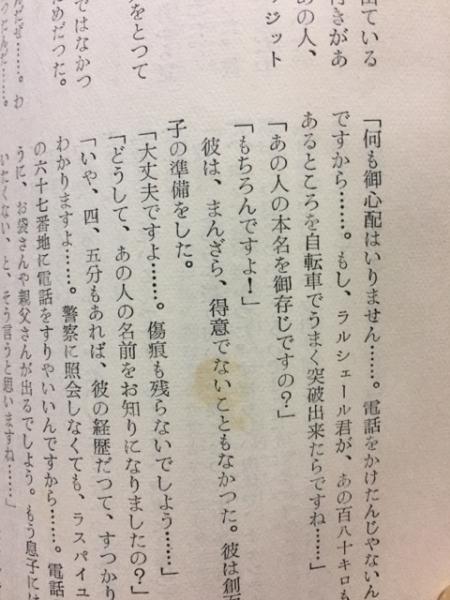 出ている
行きがあ
あの人、
ジット
をとつて
ではなかつ
めだつた。
「何も御心配はいりません……。電話をかけたんじゃないん
ですから……。もし、ラルシェール君が、あの百八十キロも
あるところを自転車でうまく突破出来たらですね……」
「あの人の本名を御存じですの？」
「もちろんですよ！」
彼は、まんざら、得意でないこともなかつた。彼は創面
子の準備をした。
「大丈夫ですよ……。傷痕も残らないでしよう……」
「どうして、あの人の名前をお知りになりましたの？」
「いや、四、五分もあれば、彼の経歴だつて、すつかり
わかりますよ……。警察に照会しなくても、ラスパイユ
の六十七番地に電話をすりやいいんですから……。電話
うに、お袋さんや親父さんが出るでしよう。もう息子には
いたくない、と、そう言うと思いますね……」